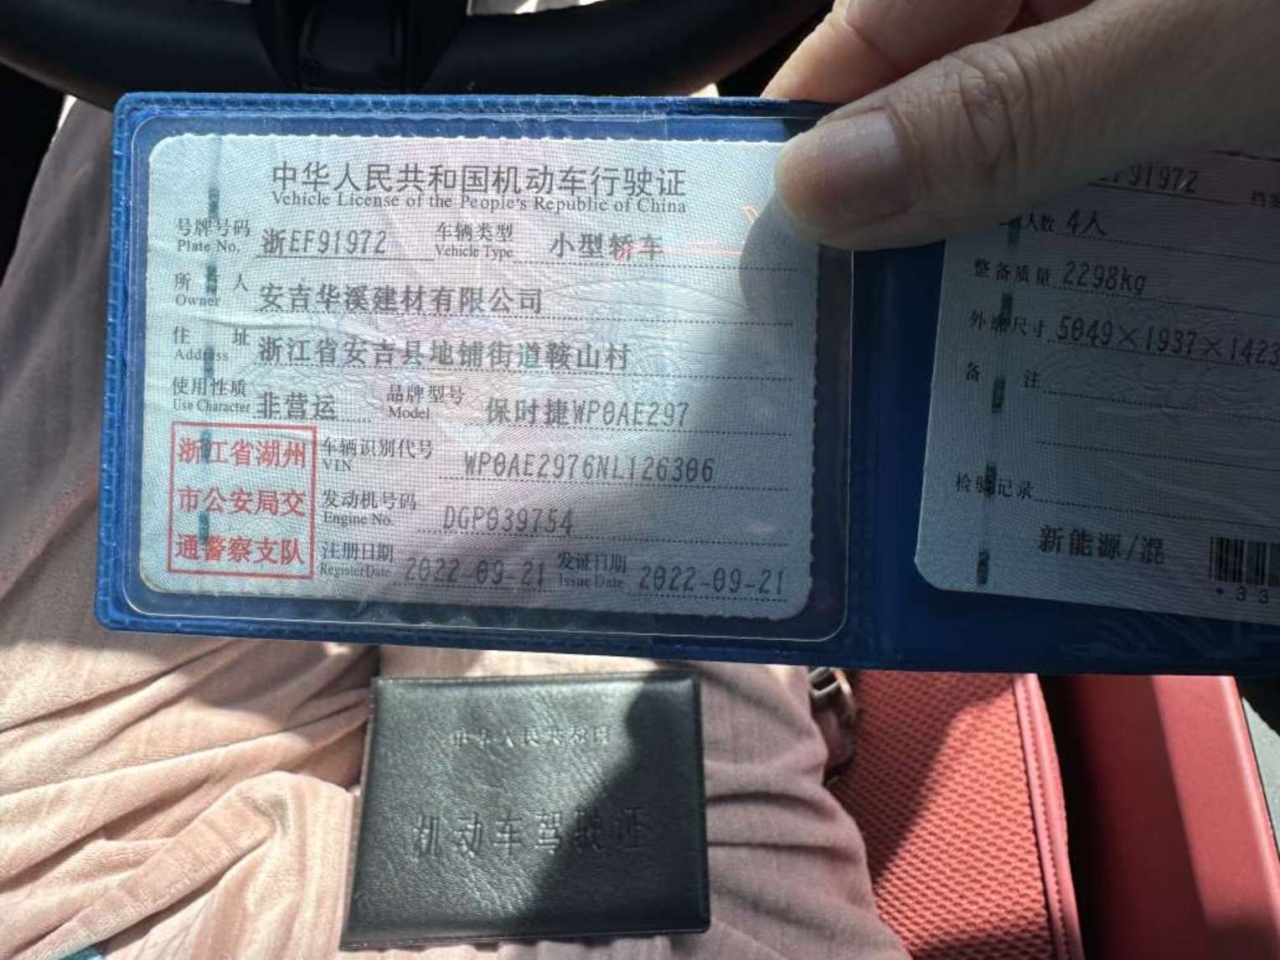 中华人民共和国机动车行驶证
Vehicle License of the People's Republic of China
号牌号码 浙EF91972 车辆类型 小型轿车
Plate No. Vehicle Type
所有人 安吉华溪建材有限公司
Owner
住址 浙江省安吉县地铺街道鞍山村
Address
使用性质 非营运 品牌型号 保时捷WP0AE297
Use Character Model
浙江省湖州
市公安局交
通警察支队
车辆识别代号 WP0AE2976NL126306
VIN
发动机号码 DGP039754
Engine No.
注册日期 2022-09-21 发证日期 2022-09-21
Register Date Issue Date
F91972
人数 4人
整备质量 2298kg
外廓尺寸 5049×1937×1423
备注
检验记录
新能源/混
*33
中华人民共和国
机动车驾驶证